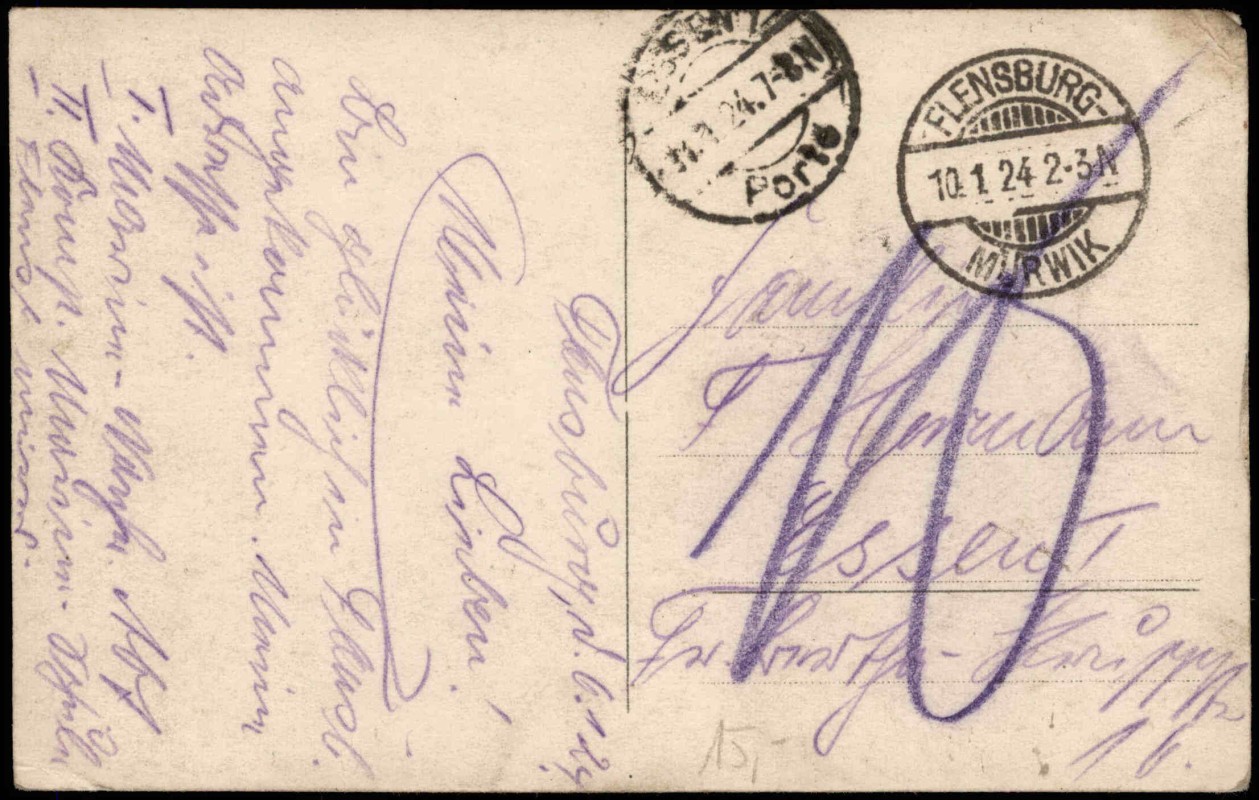 ESSEN 1
11.1.24.7-8N
Porto
FLENSBURG-
10.1.24 2-3N
MÜRWIK
10
Familie
F Hermann
Essen
Fr. Bertha-Krupp
16.
15,-
Flensburg, d. 6.1.24
Meine Lieben!
Bin glücklich in Flensb.
angekommen. Meine
Adresse ist.
I. Marine- Art. Abt
II. Komp. Marine- Schule
Flensb.